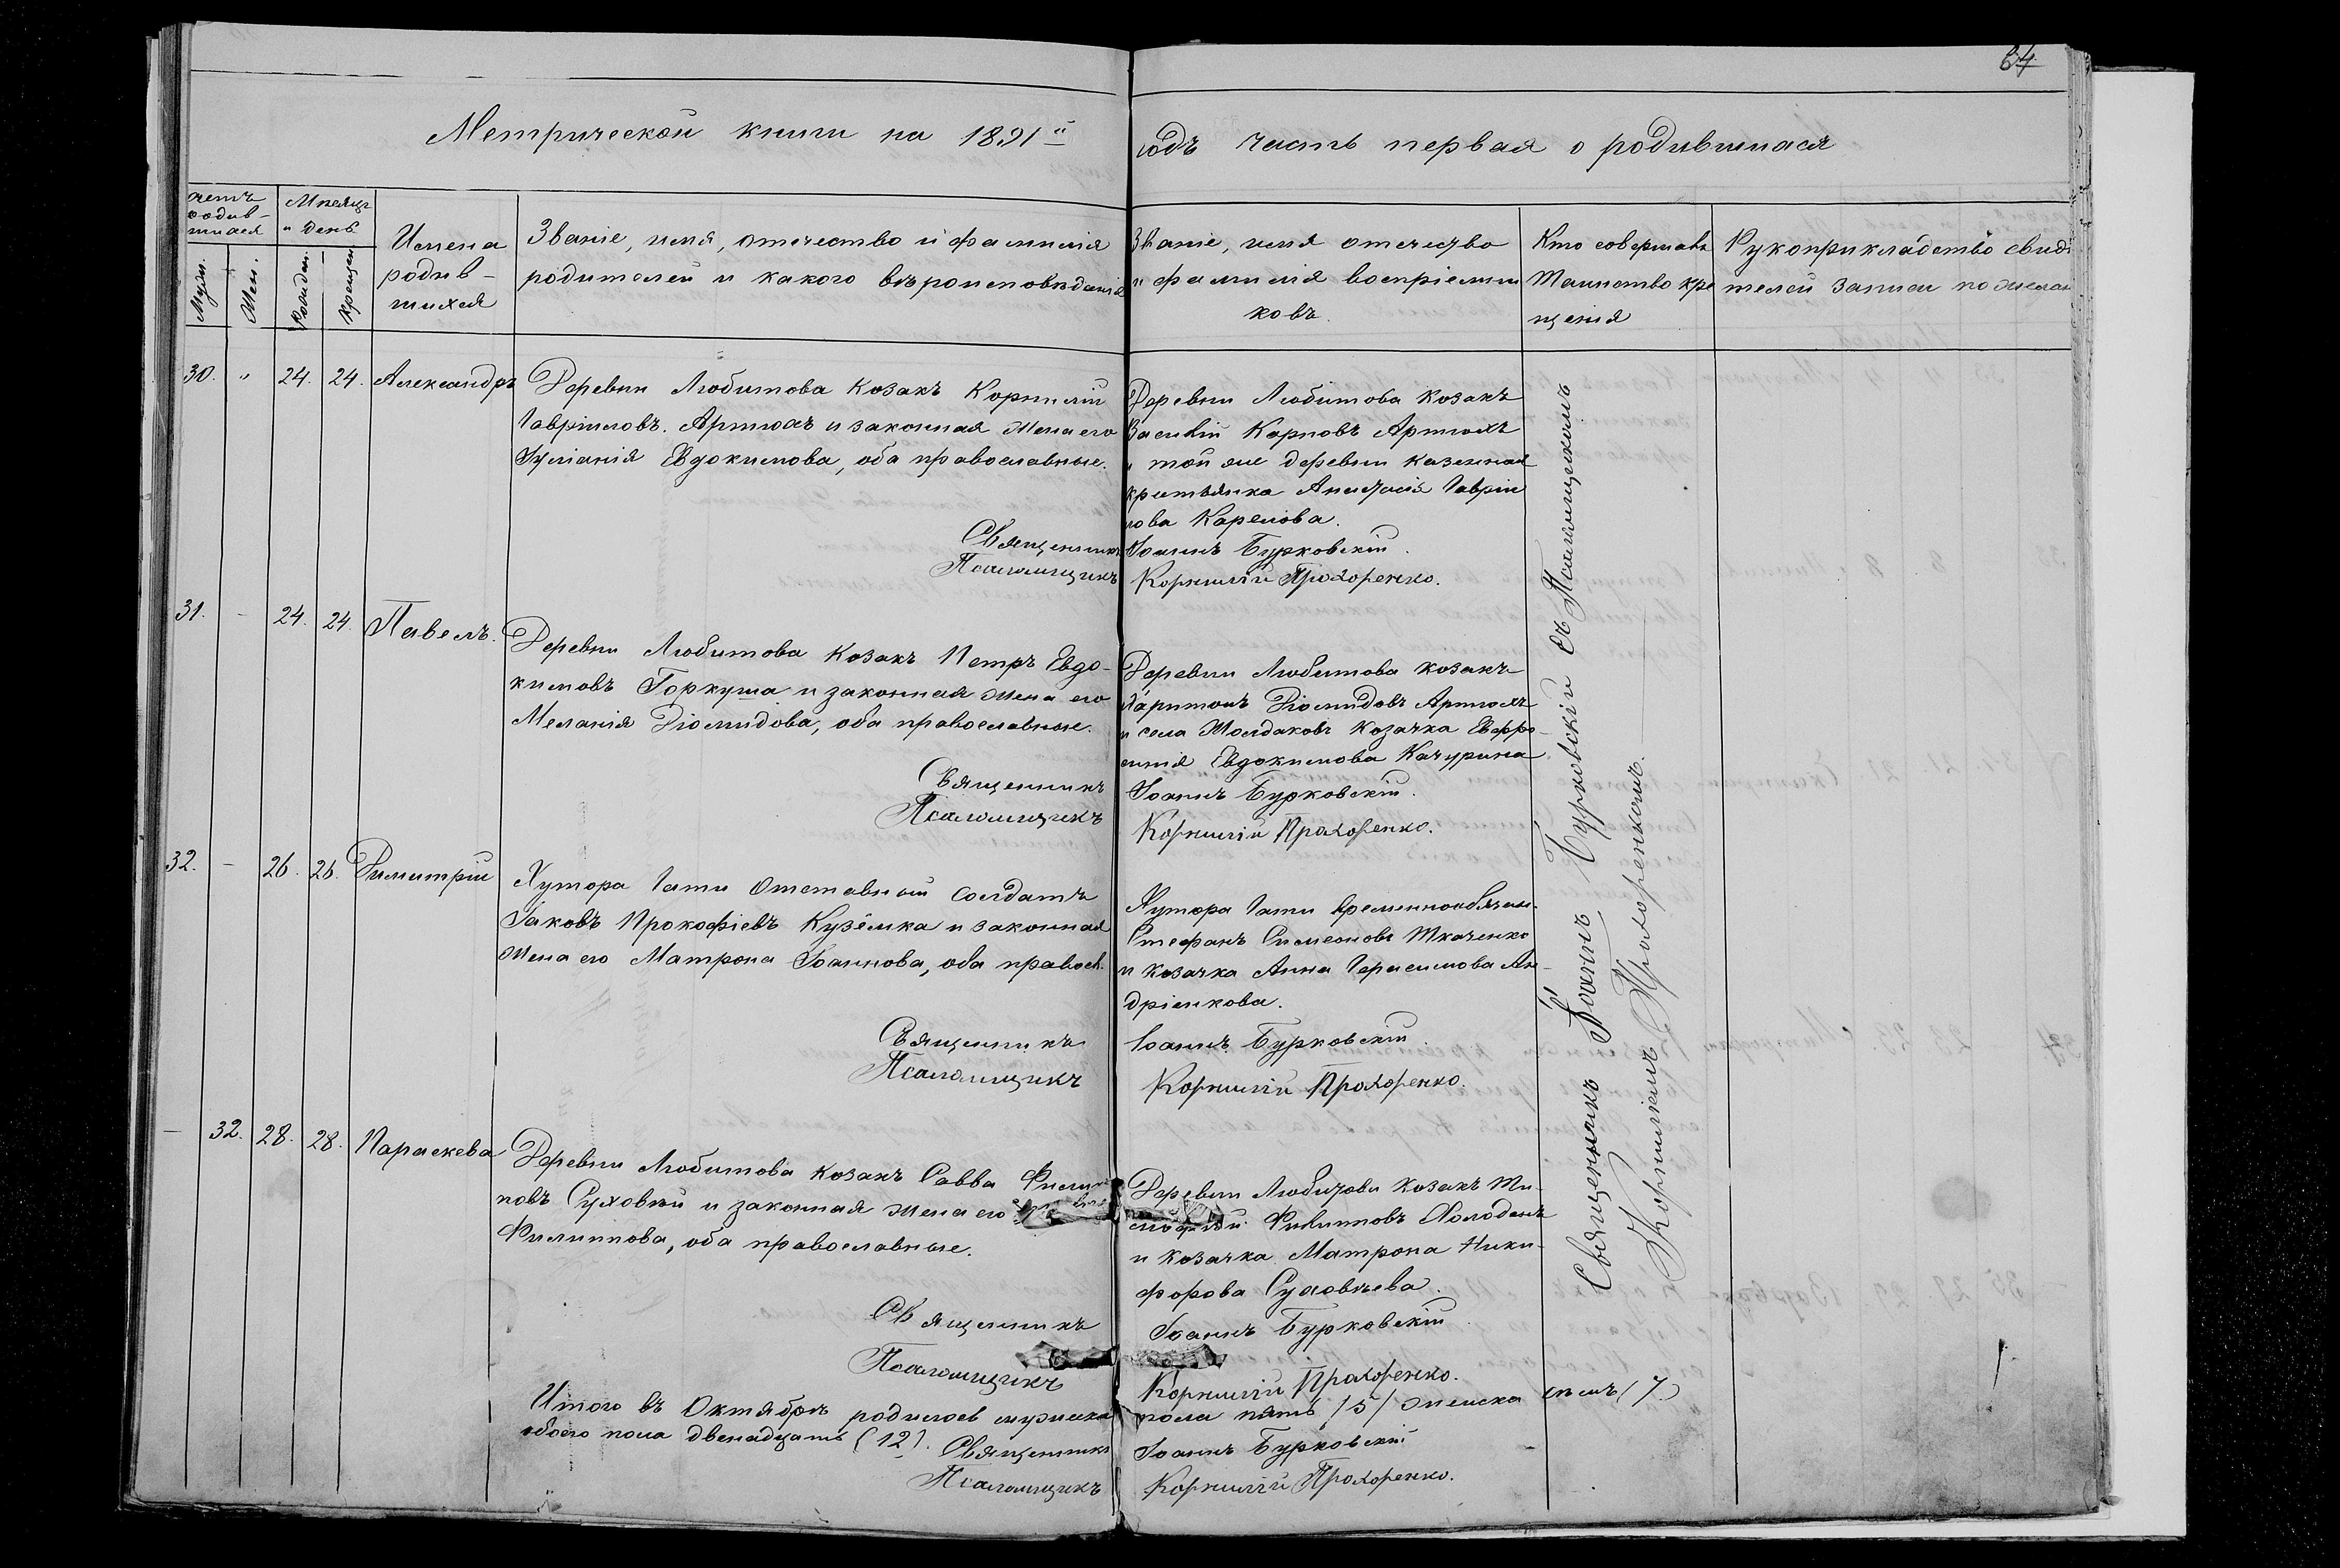 64
Метрической книги на 1891й
годъ часть первая о родившихся
Счетъ родив-шихся
Мѣсяцъ и день
Муж.
Жен.
Рожден.
Крещен.
Имена
родив-
шихся
Званіе, имя, отчество и фамилія
родителей и какого вѣроисповѣданія
Званіе, имя отчество
и фамилія воспріемни
ковъ.
Кто совершавъ
Таинство кре
щенія
Рукоприкладство свидѣ
телей записи по желан
30. " 24. 24. Александръ
Деревни Любитова козакъ Корнилій
Гавріиловъ. Артюхъ и законная жена его
Іуліанія Евдокимова, оба православные.
Деревни Любитова козакъ
Василій Карповъ Артюхъ
и той же деревни казенная
крестьянка Анастасія Гавріи
лова Карелова.
Священникъ Іоаннъ Бурковскій.
Псаломщикъ Корнилій Прохоренко.
31. - 24. 24. Павелъ.
Деревни Любитова козакъ Петръ Евдо-
кимовъ Горкуша и законная жена его
Меланія Діомидова, оба православные.
Деревни Любитова козакъ
Харитонъ Діомидовъ Артюхъ
и села Жолдаковъ козачка Евфро-
синія Евдокимова Качурина
Священникъ Іоаннъ Бурковскій.
Псаломщикъ Корнилій Прохоренко.
32. - 26. 26. Димитрій
Хутора Гати Отставной солдатъ
Іаковъ Прокофіевъ Кузёмка и законная
жена его Матрона Іоаннова, оба правосл.
Хутора Гати временнообязан.
Стефанъ Симеоновъ Ткаченко
и козачка Анна Герасимова Ан-
дріенкова.
Священникъ Іоаннъ Бурковскій.
Псаломщикъ Корнилій Прохоренко.
- 32. 28. 28. Параскева
Деревни Любитова козакъ Савва Филип
повъ Суховѣй и законная жена его
Филиппова, оба православные.
Деревни Любитова козакъ Ти-
мофей Филипповъ Холоденъ
и козачка Матрона Ники-
форова Суховѣева.
Священникъ Іоаннъ Бурковскій
Псаломщикъ Корнилій Прохоренко.
Итого въ Октябрѣ родилось мужеска пола пять /5/ женска семь (7.)
обоего пола двенадцать (12). Священникъ Іоаннъ Бурковскій
Псаломщикъ Корнилій Прохоренко.
Священникъ Іоаннъ Бурковскій съ Псаломщикомъ
Корниліемъ Прохоренкомъ.